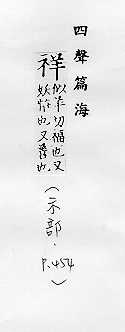 四聲篇海
祥
似羊切福也又
妖怪也又善也
(示部.
P.454)